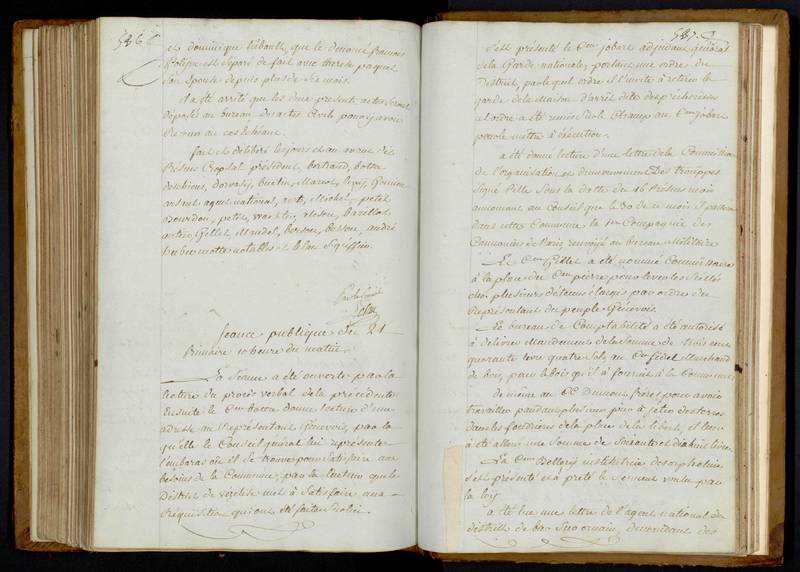 586
et dominique thébault, que le denommé francois
est séparé de fait avec therese paquet
son épouse depuis plus de six mois.
il a été arrêté que les deux presents actes seront
déposés au bureau des actes civils pour y avoir
recours au cas de besoin.
fait et délibéré les jours et an avant dit
Présens Crapsal président, bertrand, botta
deschiens, dorvasy, buctin, Marcot,
agent national, Michel, petit
petit, alexon, barillot
antin, Gillet, Mandel, berson, besson, andré
hubermotte notables et leclerc greffier.
Seance publique du 21
Primaire 10 heures du matin.
La Seance a été ouverte par la
lecture du procès verbal de la précédente
Ensuite le Cen botta donne lecture d'une
adresse au Représentant Génevois, par la
qu'elle le Conseil général lui représente
l'embaras où il se trouve pour satisfaire aux
besoins de la Commune, par la lenteur que le
District de vezelise met à satisfaire aux
Réquisitions qui ont été faites
587.
s'est présenté le Cen jobart adjudant général
de la Garde nationale, portant une ordre du
District, par lequel ordre il l'invite à retirer la
garde de la Maison d'arrêt dite des prêcheresses
et ordre a été remise de le au Cen jobart
pour le mettre à éxécution.
a été donné lecture d'une lettre de la Commission
de l'organisation et du mouvement Des trouppes
signé Pille sous la datte du 16 Présens mois
annoncant au Conseil que le 30 de ce mois il passera
dans cette Commune la 1ere Compagnie des
Canoniers de Paris renvoyé au bureau Militaire
Le Cen Gillet a été nommé Commissaire
à la place du Cen pierre pour lever les scellés
chez plusieurs détenus élargis par ordre du
Représentant du peuple Génevois.
Le bureau de Comptabilité a été autorisé
à délivrer Mandement de la Somme de trois cent
quarante livre quatre Sols, au Cen fedel Marchand
de bois, pour le bois qu'il a fournit à la Commune,
de même au Cen Dumont, frères pour avoir
travailler pendant plusieurs jours à jetter des terres
dans les fondrières de la place de la liberté, il leur
a été alloué une Somme de Soixante et dix huit livres.
La Cenne Dellery institutrice des orphelines
s'est présenté et a prêté le Serment voulu par
la loy
a été lue une lettre de l'agent national du
district de bar Sur ornain, demandant des